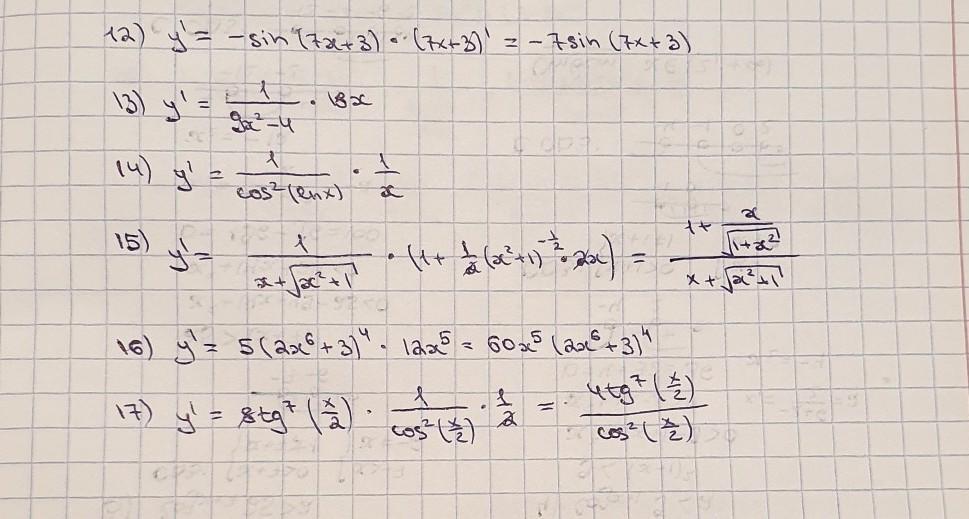 12) y' = -sin (7x+3) · (7x+3)' = -7sin (7x+3)
13) y' = 1/(9x²-4) · 18x
14) y' = 1/(cos²(lnx)) · 1/x
15) y' = 1/(x+√(x²+1)) · (1 + 1/2 (x²+1)^(-1/2) · 2x) = (1 + x/√(1+x²))/(x+√(x²+1))
16) y' = 5(2x⁶+3)⁴ · 12x⁵ = 60x⁵ (2x⁶+3)⁴
17) y' = 8tg⁷ (x/2) · 1/(cos²(x/2)) · 1/2 = (4tg⁷ (x/2))/(cos² (x/2))